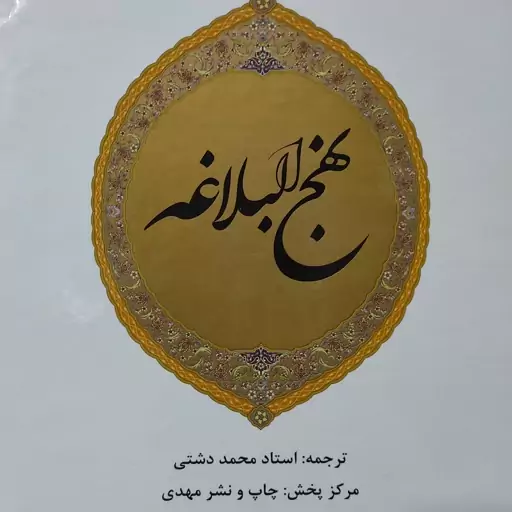 نهج البلاغه
ترجمه: استاد محمد دشتی
مرکز پخش: چاپ و نشر مهدی